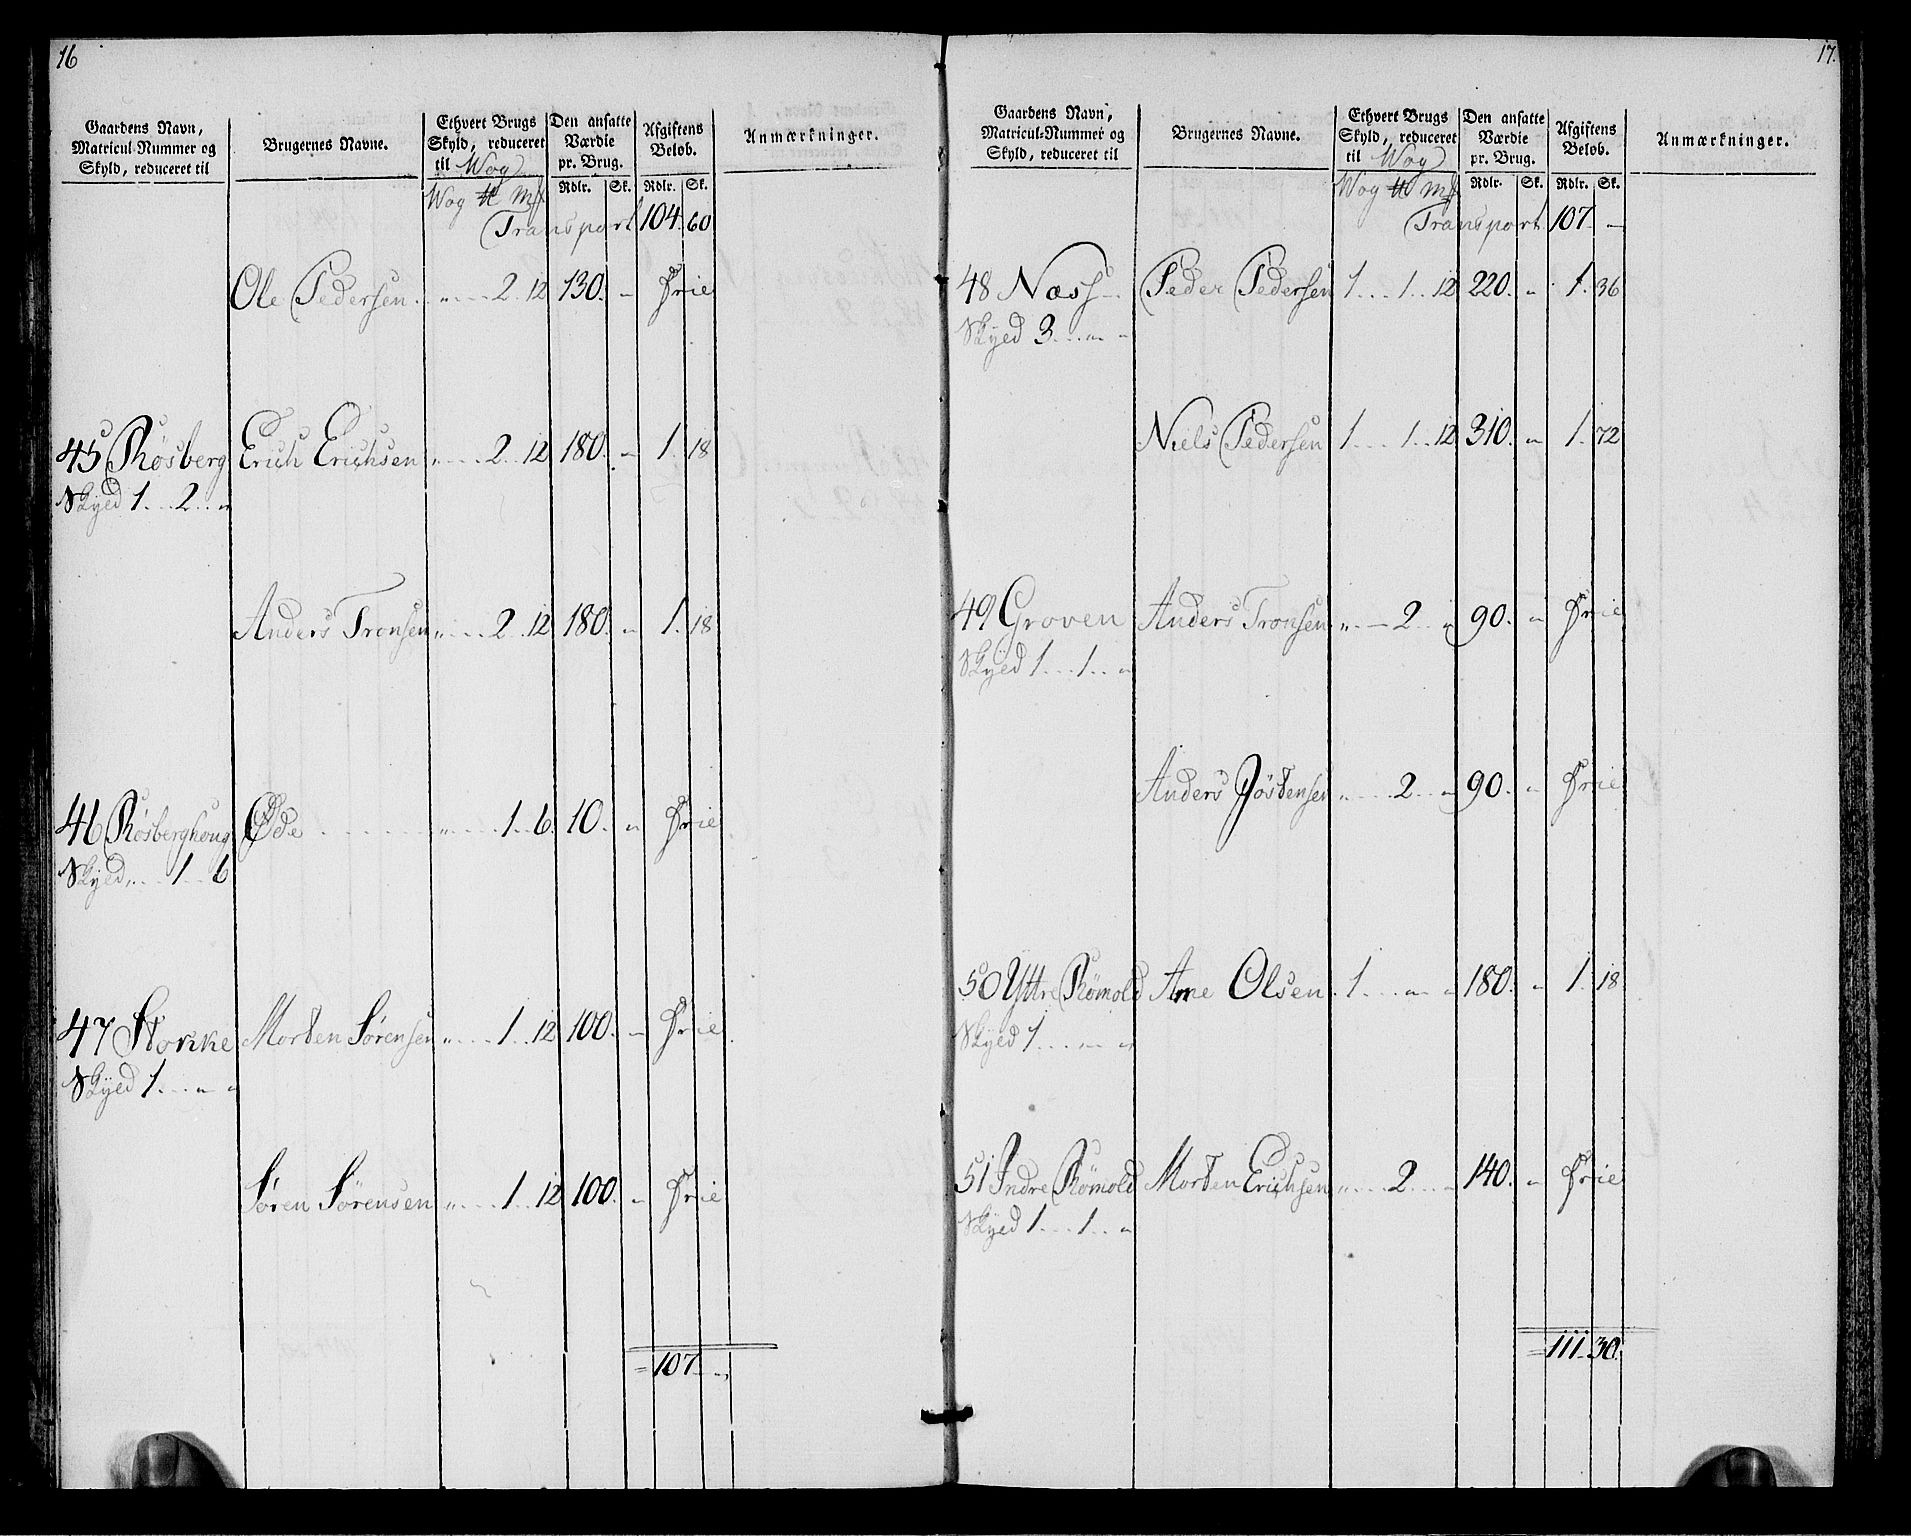 16
Gaardens Navn, Matricul-Nummer og Skyld, reduceret til | Brugernes Navne. | Ethvert Brugs Skyld, reduceret til Wog | Den ansatte Værdie pr. Brug. | Afgiftens Beløb. | Anmærkninger.
Wog ℔ Mk | Rdlr. Sk. | Rdlr. Sk.
Transport 104. 60
Ole Pedersen „ 2 12 130. „ Frie
45 Røsberg Erich Erichsen „ 2 12 180. „ 1. 18
Skyed 1 2 „
Anders Tronsen „ 2 12 180. „ 1. 18
46 Røsberghoug Øde „ 1 6. 10. „ Frie
Skyed „ 1 6
47 Stokke Morten Sørensen „ 1 12 100. „ Frie
Skyed 1 „ „
Søren Sørensen „ 1 12 100. „ Frie
= 107 „
17.
Gaardens Navn, Matricul-Nummer og Skyld, reduceret til | Brugernes Navne. | Ethvert Brugs Skyld, reduceret til Wog | Den ansatte Værdie pr. Brug. | Afgiftens Beløb. | Anmærkninger.
Wog ℔ Mk | Rdlr. Sk. | Rdlr. Sk.
Transport 107. „
48 Næss Peder Pedersen 1 1 12 220. „ 1. 36
Skyed 3 „ „
Niels Pedersen 1 1 12 310. „ 1. 72
49 Groven Anders Tronsen „ 2 „ 90. „ Frie
Skyed 1 1 „
Anders Jøstensen „ 2 „ 90. „ Frie
50 Yttre Rømold Arne Olsen 1 „ „ 180. „ 1. 18
Skyed 1 „ „
51 Indre Rømold Morten Erichsen „ 2 „ 140. „ Frie
Skyed 1 1 „
= 111 30.